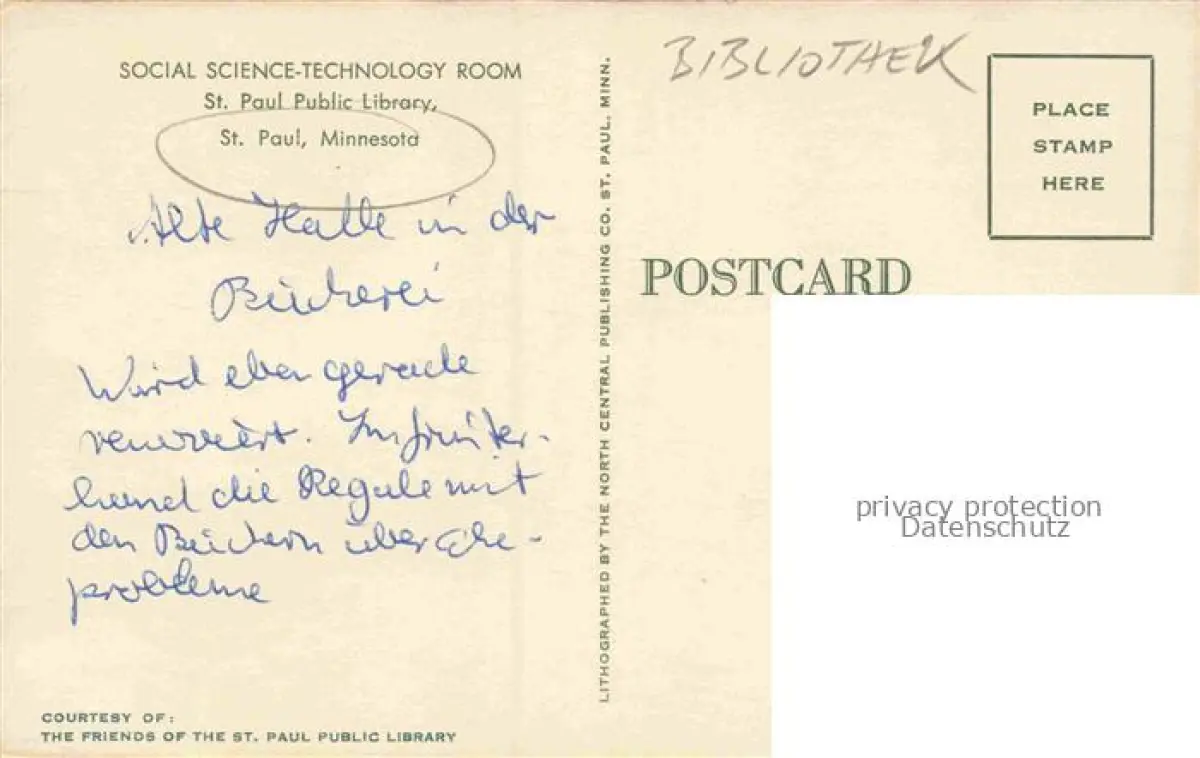 SOCIAL SCIENCE-TECHNOLOGY ROOM
St. Paul Public Library,
St. Paul, Minnesota
Alte Halle in der
Bücherei
Wird eben gerade
renoviert. Im Hinter-
hund die Regale mit
den Büchern über Ehe-
probleme
COURTESY OF:
THE FRIENDS OF THE ST. PAUL PUBLIC LIBRARY
LITHOGRAPHED BY THE NORTH CENTRAL PUBLISHING CO. ST. PAUL. MINN.
BIBLIOTHEK
PLACE
STAMP
HERE
POSTCARD
privacy protection
Datenschutz